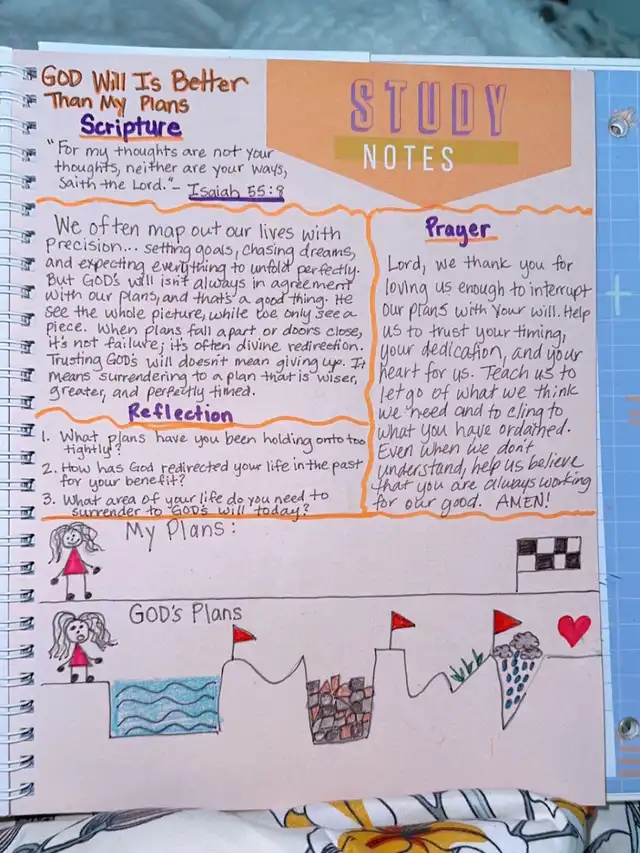 GOD Will Is Better
Than My Plans
STUDY
NOTES
Scripture
"For my thoughts are not your
thoughts, neither are your ways,
saith the Lord."- Isaiah 55:8
We often map out our lives with
precision... setting goals, chasing dreams,
and expecting everything to unfold perfectly.
But GOD's will isn't always in agreement
with our plans, and that's a good thing. He
see the whole picture, while we only see a
piece. When plans fall apart or doors close,
it's not failure; it's often divine redirection.
Trusting GOD's will doesn't mean giving up. It
means surrendering to a plan that is wiser,
greater, and perfectly timed.
Reflection
1. What plans have you been holding onto too
tightly?
2. How has God redirected your life in the past
for your benefit?
3. What area of your life do you need to
surrender to GOD's will today?
Prayer
Lord, we thank you for
loving us enough to interrupt
our plans with your will. Help
us to trust your timing,
your dedication, and your
heart for us. Teach us to
let go of what we think
we need and to cling to
what you have ordained.
Even when we don't
understand, help us believe
that you are always working
for our good. AMEN!
My Plans:
GOD'S Plans